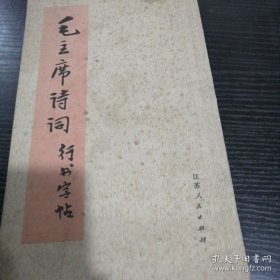 毛主席诗词
行书字帖
江苏人民出版社
孔夫子旧书网